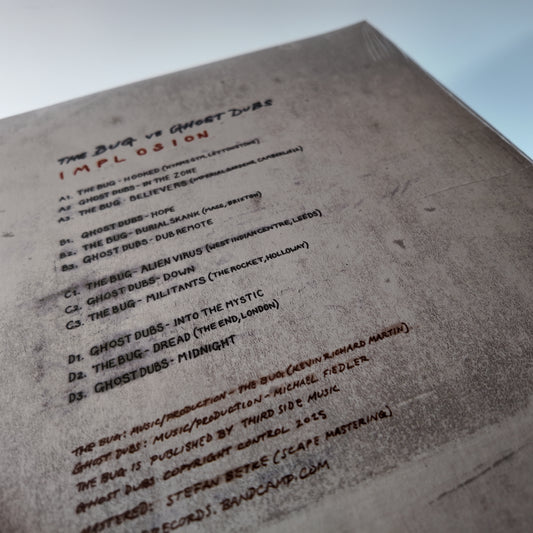 THE BUG vs GHOST DUBS
IMPLOSION
A1. THE BUG - HOOKED (HYPERDUB, LEYTONSTONE)
A2. GHOST DUBS - IN THE ZONE
A3. THE BUG - BELIEVERS (IMPERIAL GARDENS, CAMBERWELL)
B1. GHOST DUBS - HOPE
B2. THE BUG - BURIAL SKANK (MASS, BRIXTON)
B3. GHOST DUBS - DUB REMOTE
C1. THE BUG - ALIEN VIRUS (WEST INDIAN CENTRE, LEEDS)
C2. GHOST DUBS - DOWN
C3. THE BUG - MILITANTS (THE ROCKET, HOLLOWAY)
D1. GHOST DUBS - INTO THE MYSTIC
D2. THE BUG - DREAD (THE END, LONDON)
D3. GHOST DUBS - MIDNIGHT
THE BUG: MUSIC/PRODUCTION - THE BUG (KEVIN RICHARD MARTIN)
GHOST DUBS: MUSIC/PRODUCTION - MICHAEL FIEDLER
THE BUG IS PUBLISHED BY THIRD SIDE MUSIC
GHOST DUBS COPYRIGHT CONTROL 2025
MASTERED: STEFAN BETKE (SCAPE MASTERING)
RECORDS.BANDCAMP.COM